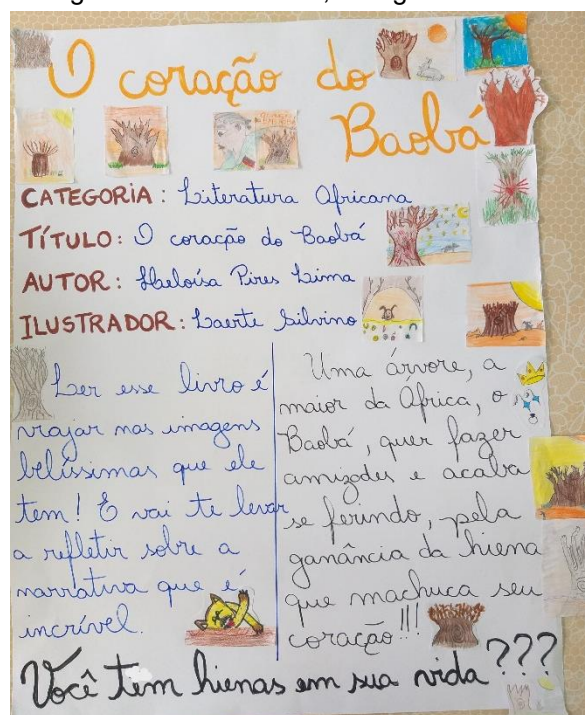 O coração do
Baobá
CATEGORIA: Literatura Africana
TÍTULO: O coração do Baobá
AUTOR: Heloísa Pires Lima
ILUSTRADOR: Laerte Silvino
Ler esse livro é
viajar nas imagens
belíssimas que ele
tem! E vai te levar
a refletir sobre a
narrativa que é
incrível.
Uma árvore, a
maior da África, o
Baobá, quer fazer
amizades e acaba
se ferindo, pela
ganância da hiena
que machuca seu
coração!!!
Você tem hienas em sua vida???